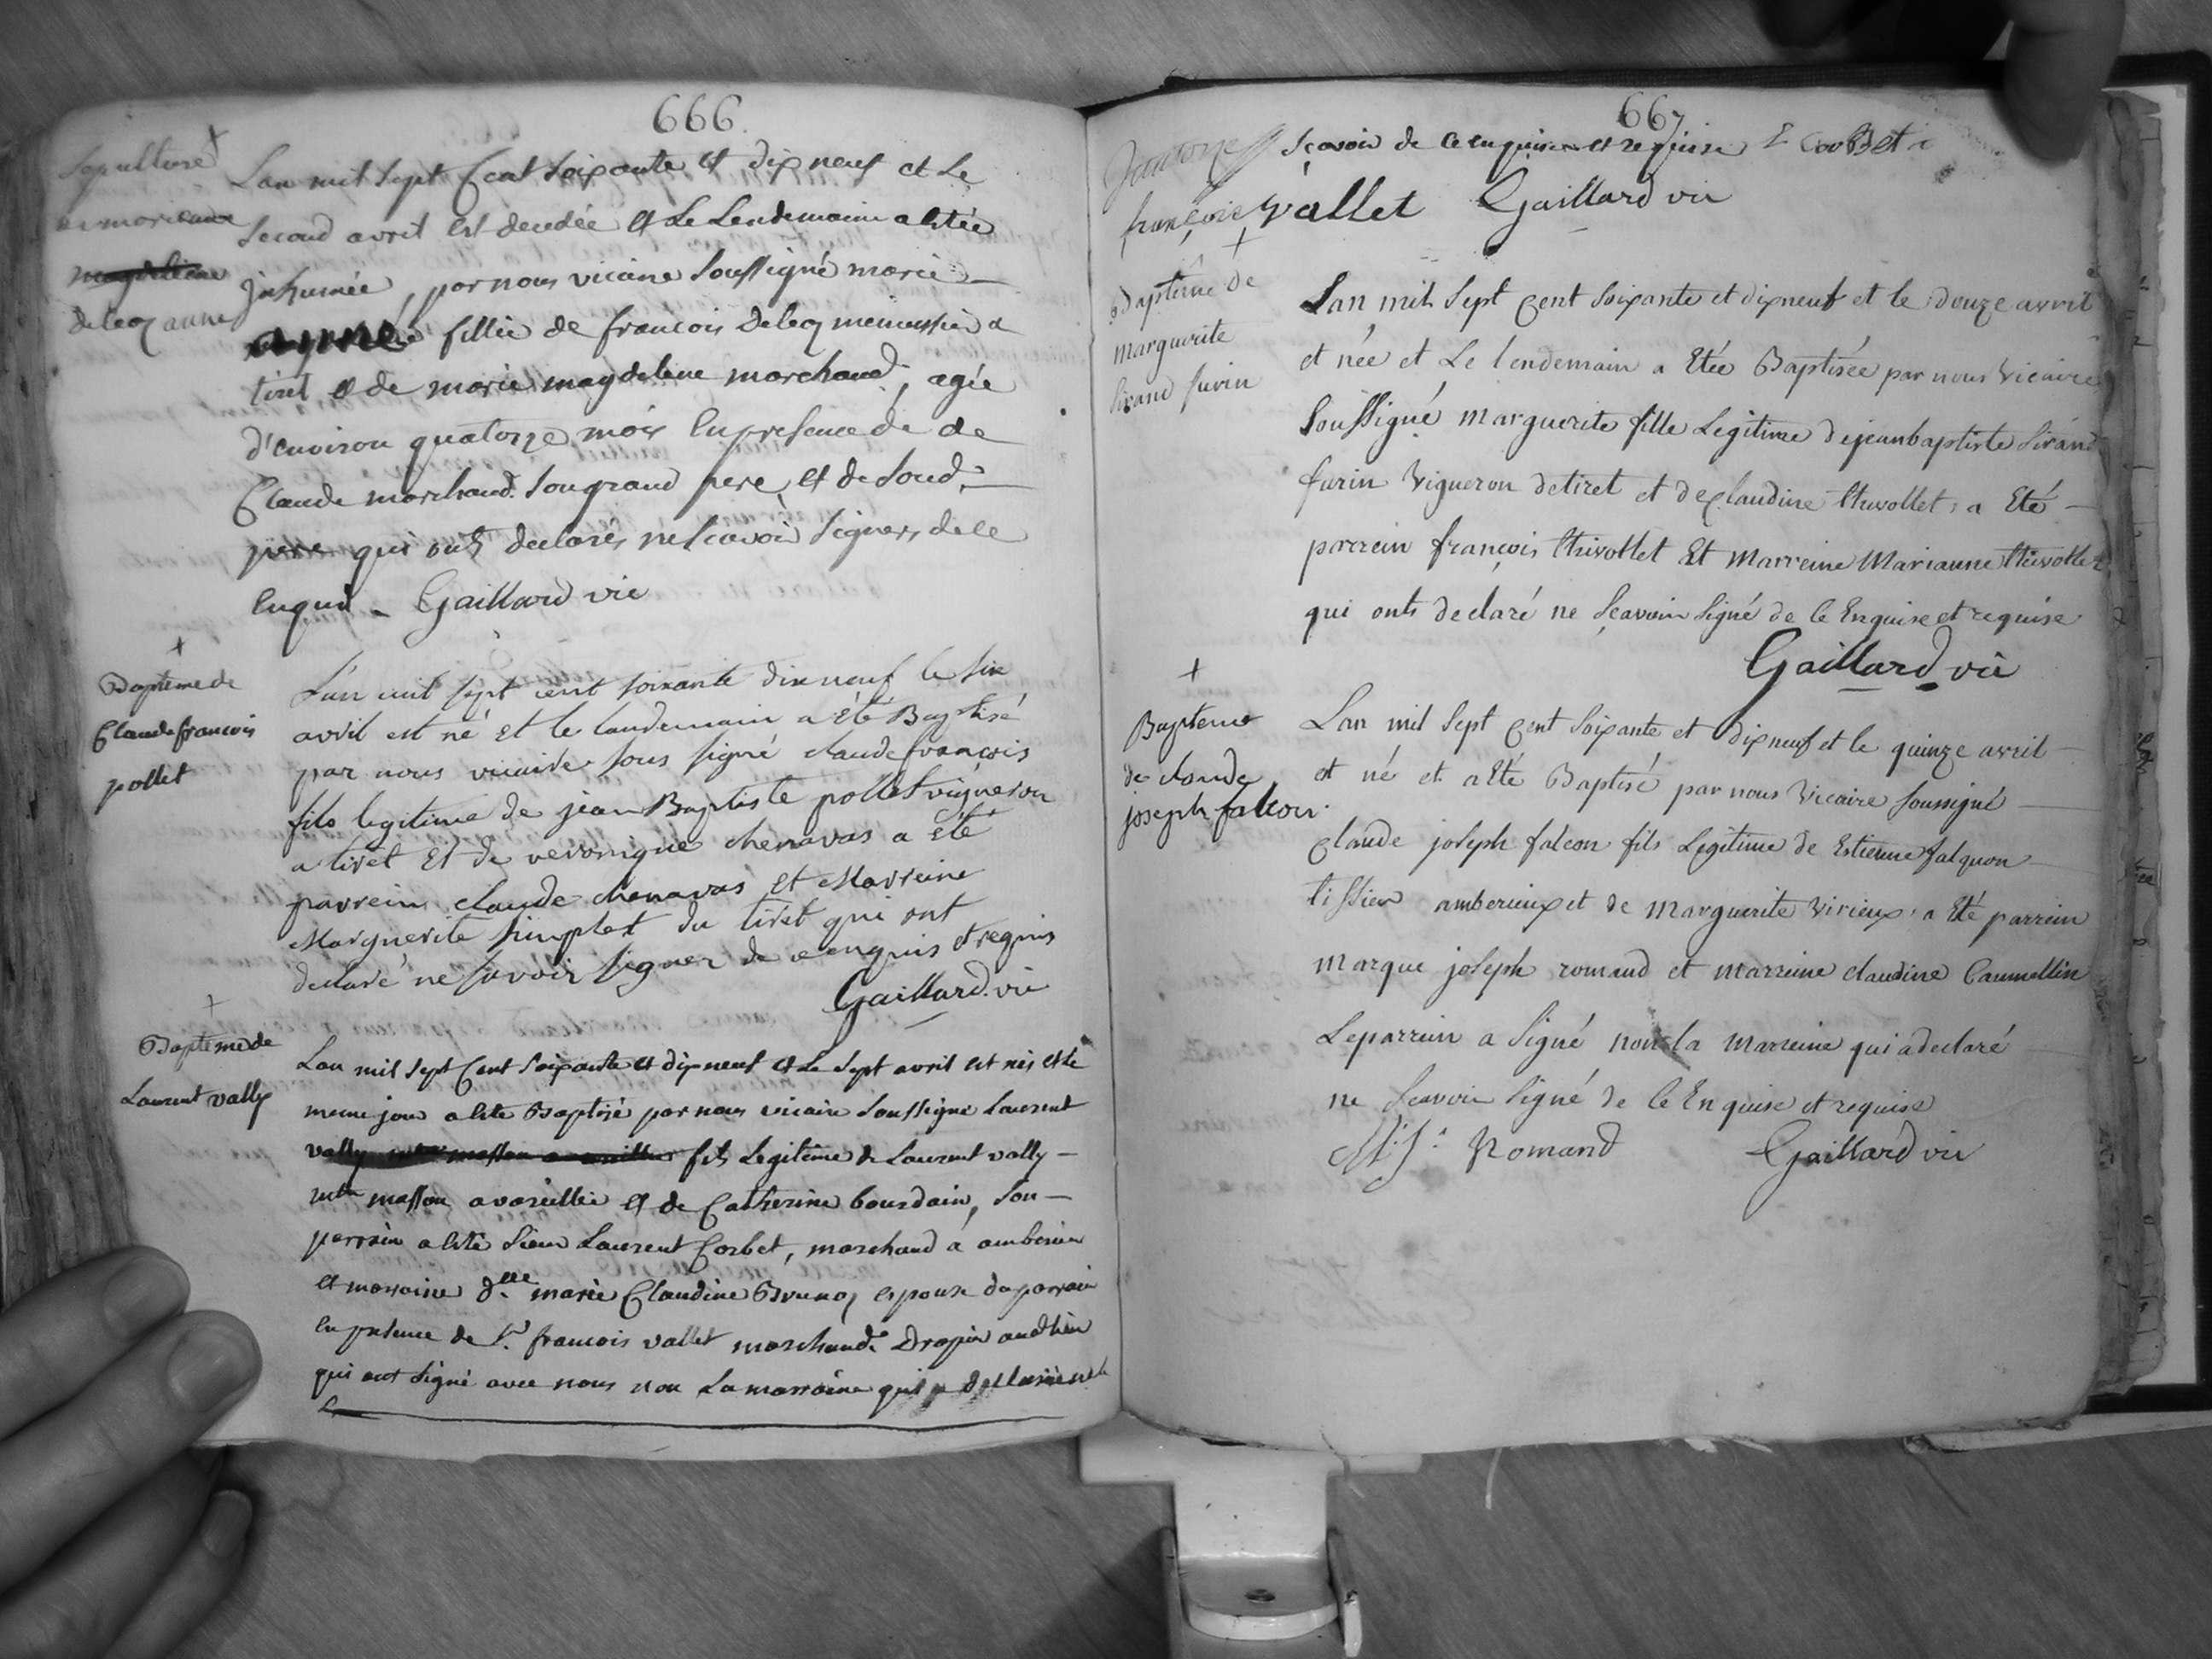 666
Sepulture
Lan mil sept Cent soixante et dix neuf et Le
second avril est decedée et Le Lendemain a etée
magdeleine
delecq anne
Inhumée, par nous vicaire soussigné marie
anne fillie de francois Delecq menussier a
tiret et de marie magdeleine marchand, agée
d'environ quatorze mois En presence de de
Claude marchand son grand pere, et de soud.
pere qui ont declarés ne scavoir signer, de ce
enquis - Gaillard vic
Bapteme de
Claude francois
pollet
L'an mil sept cent soixante dix neuf le six
avril est né et le landemain a été Baptisé
par nous vicaire sous signé claude françois
fils legitime de jean Baptiste pollet vigneron
a tiret Et de veronique chenavas a été
parrein claude chenavas et Marreine
Marguerite simplet du tiret qui ont
declaré ne savoir signer de ce enquis et requis
Gaillard vic
Bapteme de
Laurent vally
Lan mil sept Cent soixante et dix neuf et Le sept avril est nés et le
meme jour a été Baptisé par nous vicaire soussigné Laurent
vally fils Legitime de Laurent vally
mtre masson a vareillie et de Catherine bourdain, son
parrain a été sieur Laurent Corbet, marchand a amberieu
et marraine dlle marie Claudine Brunoz espouse du parrain
en presence de sr francois vallet marchand Drapier audt lieu
qui ont signé avec nous non La marraine qui a declarée ne
667
scavoir de ce enquise et requise L Corbet
françois vallet Gaillard vic
Baptême de
marguerite
sirand furin
Lan mil sept cent soixante et dixneuf et le douze avril
et née et Le lendemain a Etée Baptisée par nous Vicaire
soussigné marguerite fille Legitime de jeanbaptiste sirand
furin Vigneron detiret et de claudine thivollet, a Eté
parrein françois thivollet Et Marreine Marianne thivollet
qui onts declaré ne sçavoir signé de ce Enquise et requise
Gaillard vic
Bapteme
de claude
joseph falcon
Lan mil sept cent soixante et dixneuf et le quinze avril
et né et a été Baptisé par nous Vicaire soussigné
claude joseph falcon fils Legitime de Estienne falquon
tissier amberieux et de Marguerite Virieux, a Eté parrein
Marque joseph romand et marreine claudine Caumellin
Leparrein a signé non la Marreine qui a declaré
ne scavoir signé de ce Enquise et requise
M. J. Romand Gaillard vic